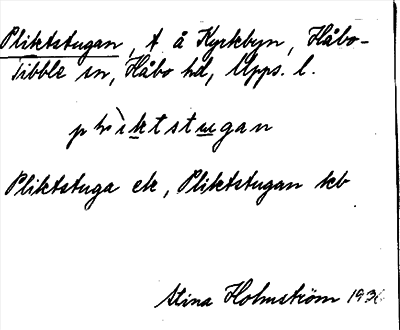 Pliktstugan, t å Kyrkbyn, Håbo-
Tibble sn, Håbo hd, Upps. l.
Pliktstuga ek, Pliktstugan kb
Stina Holmström 193